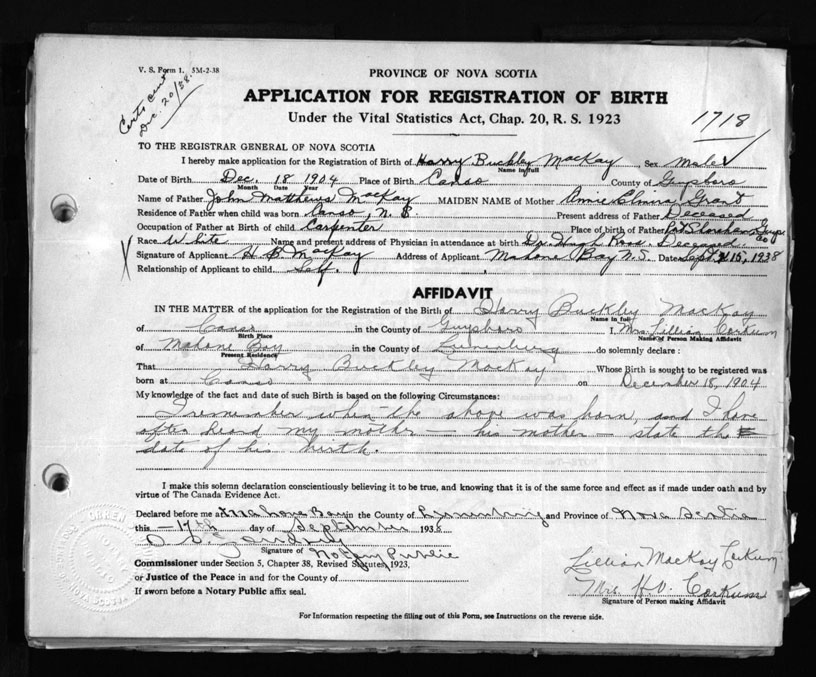 V. S. Form 1. 5M-2-38
Certs sent
Dec. 20/38.
PROVINCE OF NOVA SCOTIA
APPLICATION FOR REGISTRATION OF BIRTH
Under the Vital Statistics Act, Chap. 20, R. S. 1923
1718
TO THE REGISTRAR GENERAL OF NOVA SCOTIA
I hereby make application for the Registration of Birth of Harry Buckley MacKay Sex Male
Name in full
Date of Birth Dec. 18 1904 Place of Birth Canso County of Guysboro
Month Date Year
Name of Father John Matthews MacKay MAIDEN NAME of Mother Annie Grant
Residence of Father when child was born Canso, N. S. Present address of Father Deceased
Occupation of Father at Birth of child Carpenter Place of birth of Father Guys. Co
Race White Name and present address of Physician in attendance at birth Dr. Hugh Ross. Deceased.
X Signature of Applicant H B MacKay Address of Applicant Mahone Bay N. S. Date Sept 15, 1938
Relationship of Applicant to child Self.
AFFIDAVIT
IN THE MATTER of the application for the Registration of the Birth of Harry Buckley MacKay
Name in full
of Canso in the County of Guysboro I, Mrs. Lillian Corkum
Birth Place Name of Person Making Affidavit
of Mahone Bay in the County of Lunenburg do solemnly declare :
Present Residence
That Harry Buckley MacKay Whose Birth is sought to be registered was
born at Canso on December 18, 1904
My knowledge of the fact and date of such Birth is based on the following Circumstances:
I remember when the above was born, and I have
often heard my mother – his mother – state the
date of his birth.
I make this solemn declaration conscientiously believing it to be true, and knowing that it is of the same force and effect as if made under oath and by
virtue of The Canada Evidence Act.
Declared before me at Mahone Bay in the County of Lunenburg and Province of Nova Scotia
this – 17th day of September 1938
Signature of Notary Public
Commissioner under Section 5, Chapter 38, Revised Statutes, 1923,
or Justice of the Peace in and for the County of
If sworn before a Notary Public affix seal.
Lillian MacKay Corkum
Mrs. H. V. Corkum
Signature of Person making Affidavit
For Information respecting the filling out of this Form, see Instructions on the reverse side.